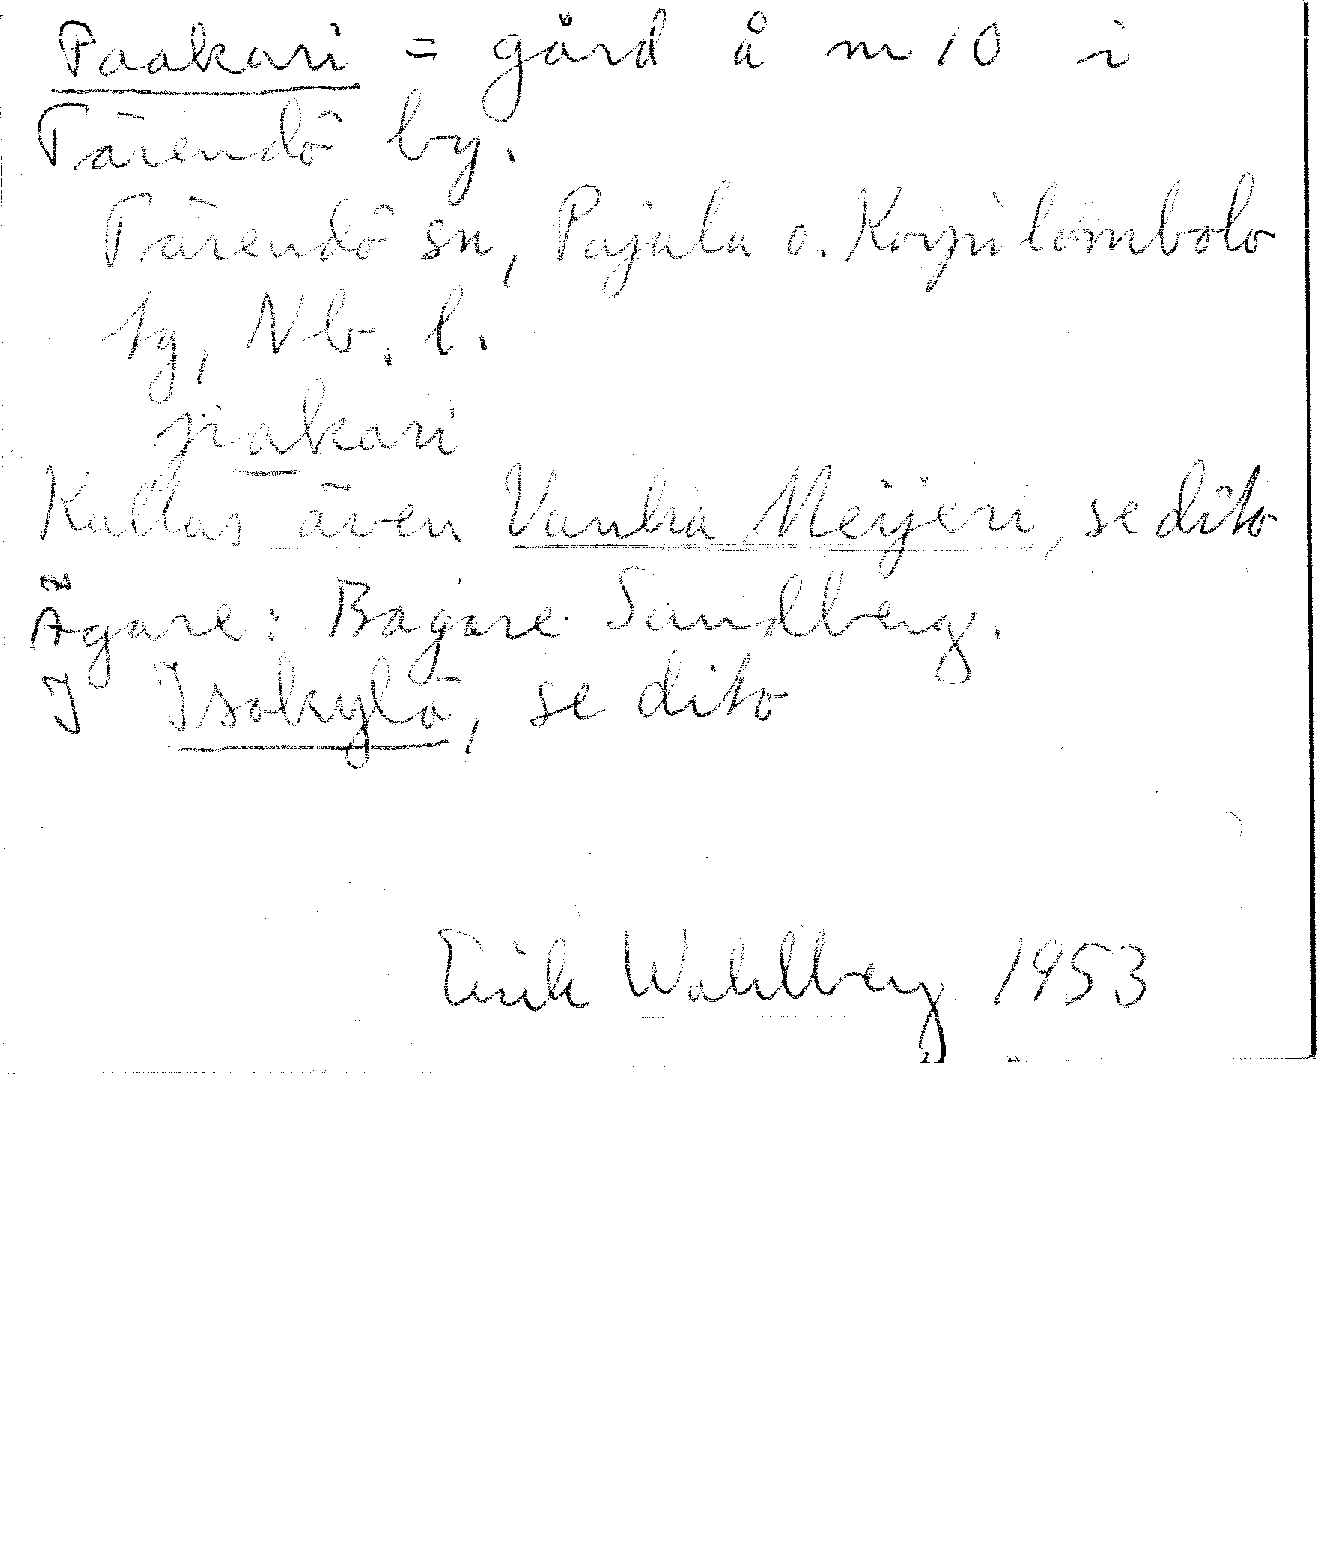 Paakari = gård å m 10 i
Tärendö by.
Tärendö sn, Pajala o. Korpilombolo
tg, Nb. l.
pakari
Kallas även Vanha Meijeri, se dito
Ägare: Bagare Sandberg.
I Isokylä, se dito
Erik Wahlberg 1953